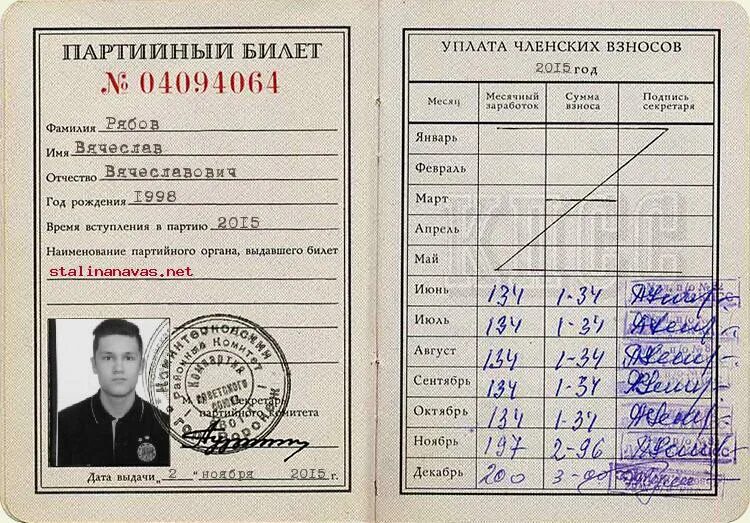 ПАРТИЙНЫЙ БИЛЕТ
№ 04094064
Фамилия Рябов
Имя Вячеслав
Отчество Вячеславович
Год рождения 1998
Время вступления в партию 2015
Наименование партийного органа, выдавшего билет
stalinanavas.net
Коминтерновский
Районный Комитет
Компартия
Советского
Союза
г. Воронеж
М. П. Секретарь
партийного комитета
Дата выдачи „ 2 “ ноября 2015 г.
УПЛАТА ЧЛЕНСКИХ ВЗНОСОВ
2015 год
Месяц Месячный заработок Сумма взноса Подпись секретаря
КПСС
Январь
Февраль
Март
Апрель
Май
Июнь 134 1-34
Июль 134 1-34
Август 134 1-34
Сентябрь 134 1-34
Октябрь 134 1-34
Ноябрь 197 2-96
Декабрь 200 3-00